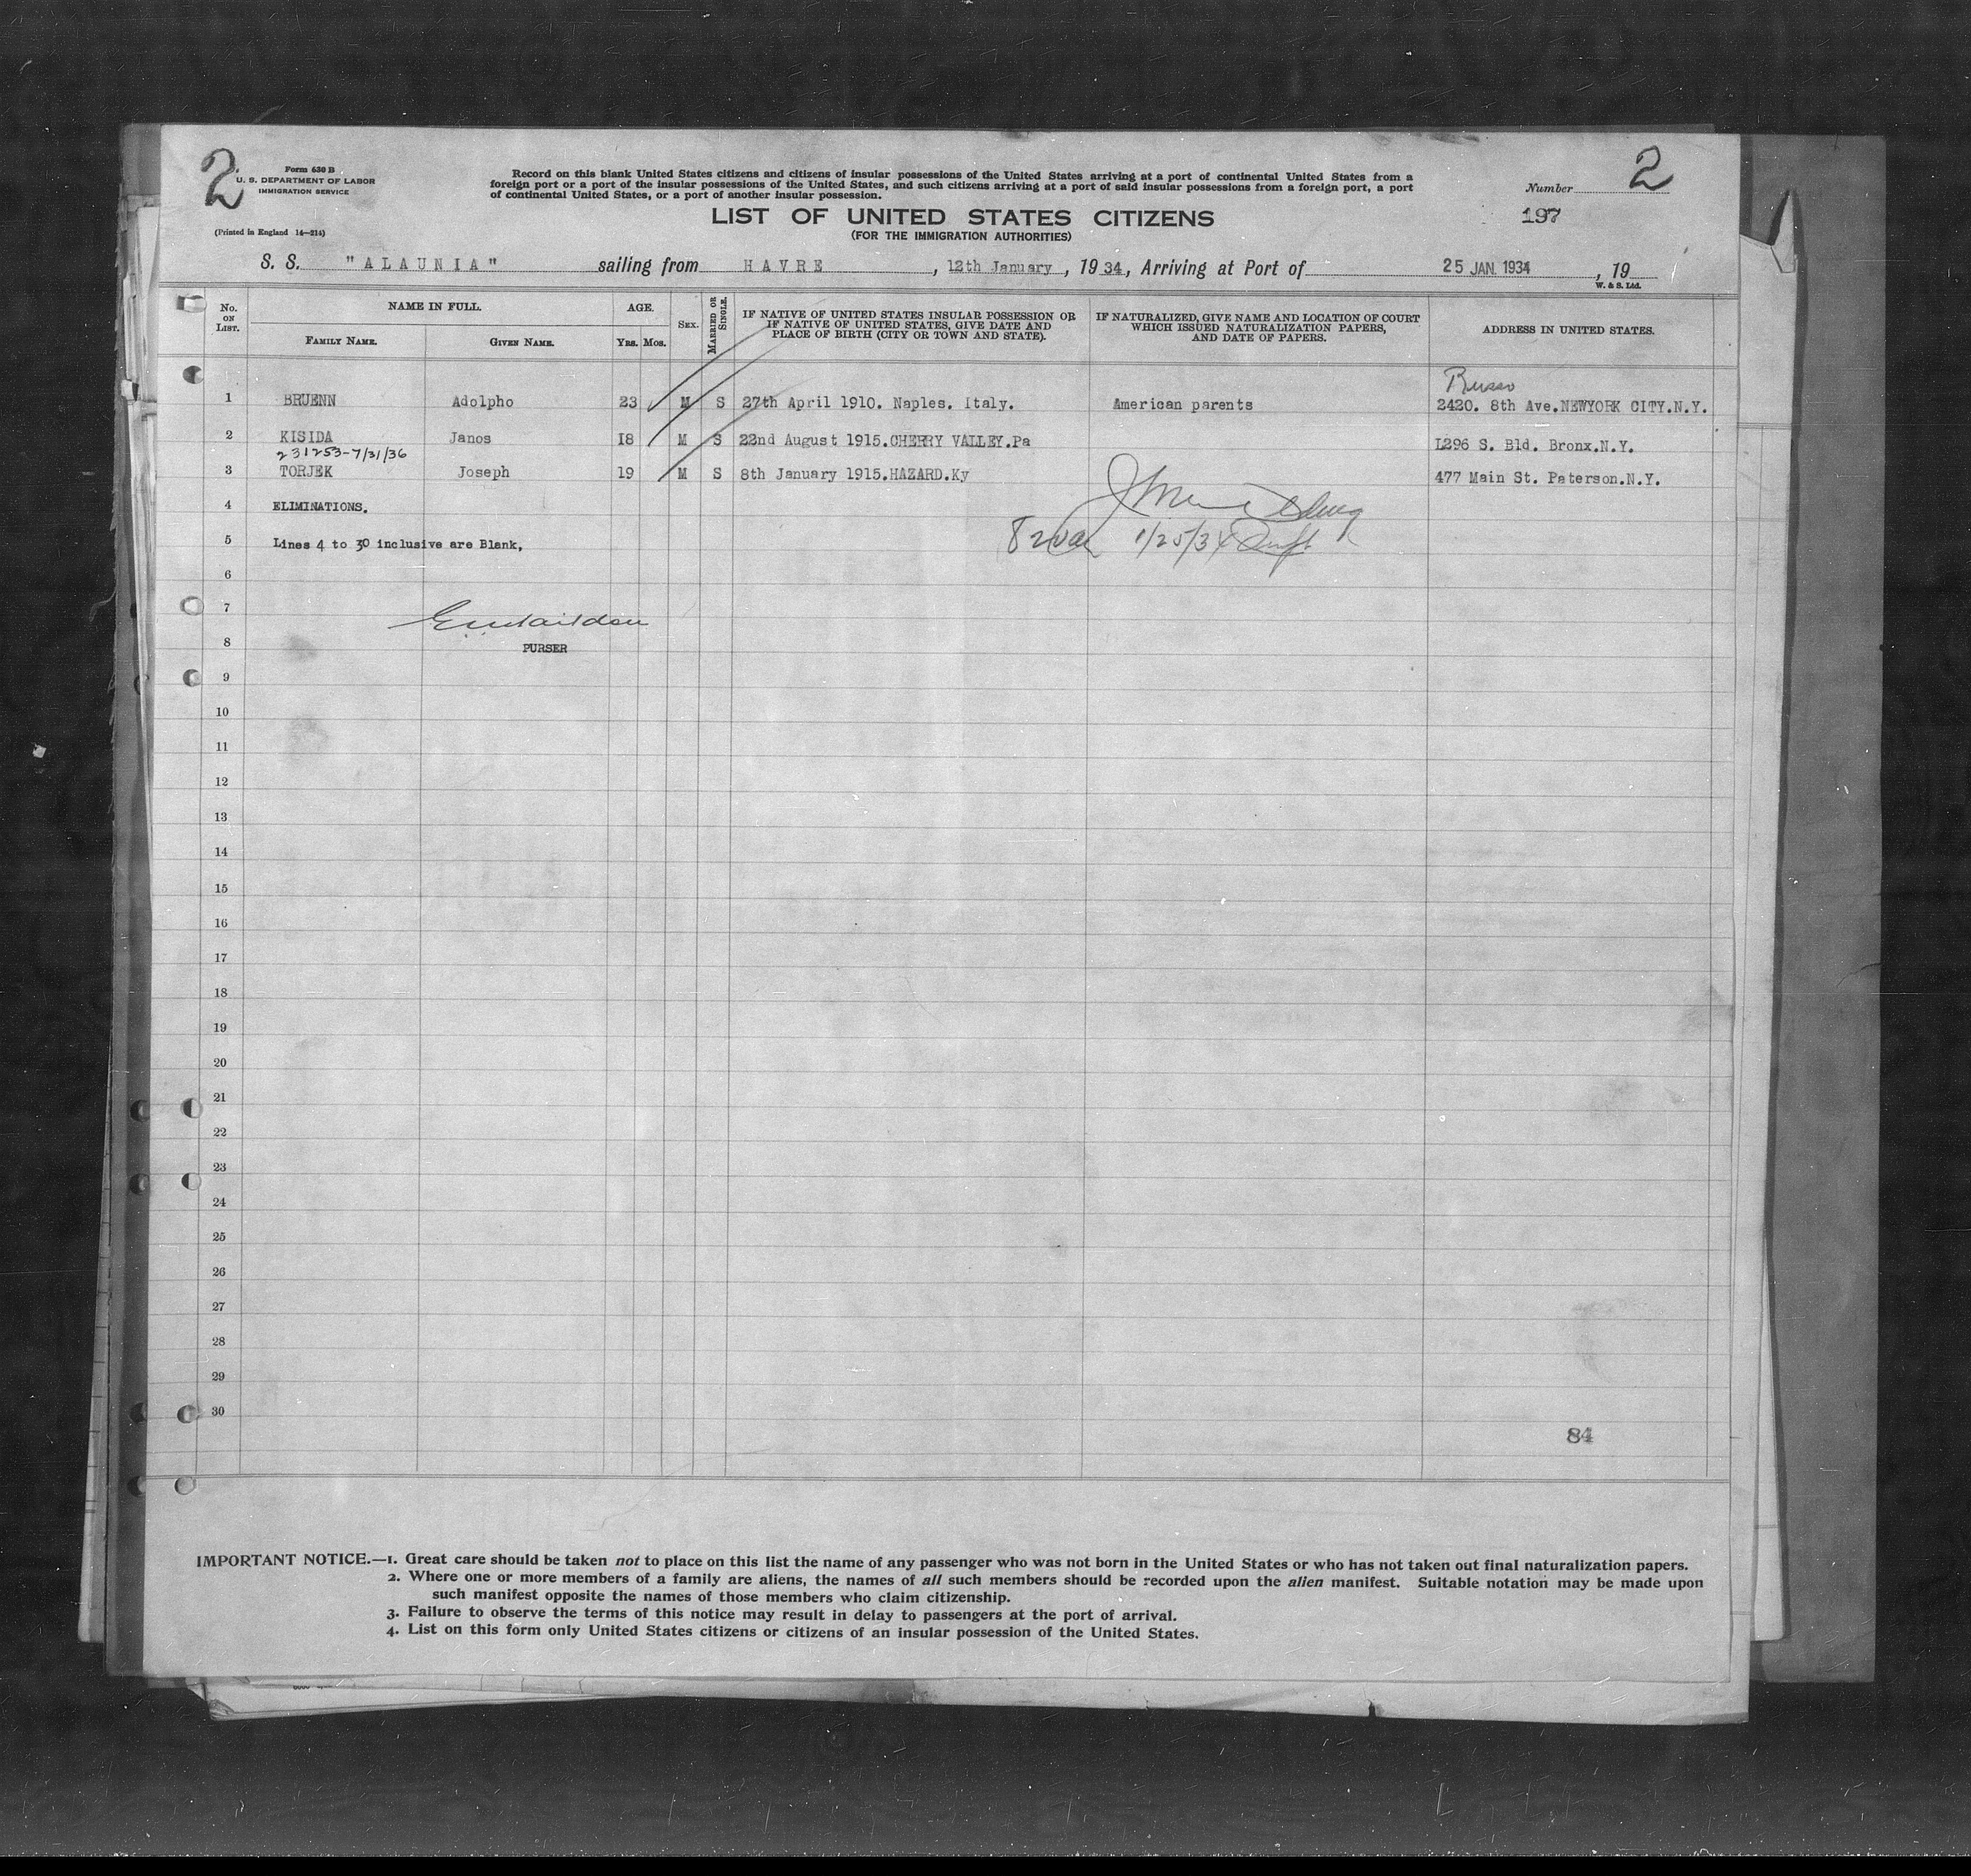 2
Form 630 B
U. S. DEPARTMENT OF LABOR
IMMIGRATION SERVICE
(Printed in England 14—214)
Record on this blank United States citizens and citizens of insular possessions of the United States arriving at a port of continental United States from a
foreign port or a port of the insular possessions of the United States, and such citizens arriving at a port of said insular possessions from a foreign port, a port
of continental United States, or a port of another insular possession.
Number 2
197
LIST OF UNITED STATES CITIZENS
(FOR THE IMMIGRATION AUTHORITIES)
S. S. "ALAUNIA" sailing from HAVRE, 12th January, 1934, Arriving at Port of 25 JAN. 1934, 19
W. & S. Ltd.
No. ON LIST. NAME IN FULL. AGE. SEX. MARRIED OR SINGLE. IF NATIVE OF UNITED STATES INSULAR POSSESSION OR IF NATIVE OF UNITED STATES, GIVE DATE AND PLACE OF BIRTH (CITY OR TOWN AND STATE). IF NATURALIZED, GIVE NAME AND LOCATION OF COURT WHICH ISSUED NATURALIZATION PAPERS, AND DATE OF PAPERS. ADDRESS IN UNITED STATES.
FAMILY NAME. GIVEN NAME. YRS. MOS.
Russo
1 BRUENN Adolpho 23 M S 27th April 1910. Naples. Italy. American parents 2420. 8th Ave.NEWYORK CITY.N.Y.
2 KISIDA Janos I8 M S 22nd August 1915.CHERRY VALLEY.Pa L296 S. Bld. Bronx.N.Y.
231253-7/31/36
3 TORJEK Joseph 19 M S 8th January 1915.HAZARD.Ky 477 Main St. Paterson.N.Y.
4 ELIMINATIONS.
5 Lines 4 to 30 inclusive are Blank,
1/25/34
6
7
8 PURSER
9
10
11
12
13
14
15
16
17
18
19
20
21
22
23
24
25
26
27
28
29
30
84
IMPORTANT NOTICE.—1. Great care should be taken not to place on this list the name of any passenger who was not born in the United States or who has not taken out final naturalization papers.
2. Where one or more members of a family are aliens, the names of all such members should be recorded upon the alien manifest. Suitable notation may be made upon
such manifest opposite the names of those members who claim citizenship.
3. Failure to observe the terms of this notice may result in delay to passengers at the port of arrival.
4. List on this form only United States citizens or citizens of an insular possession of the United States.